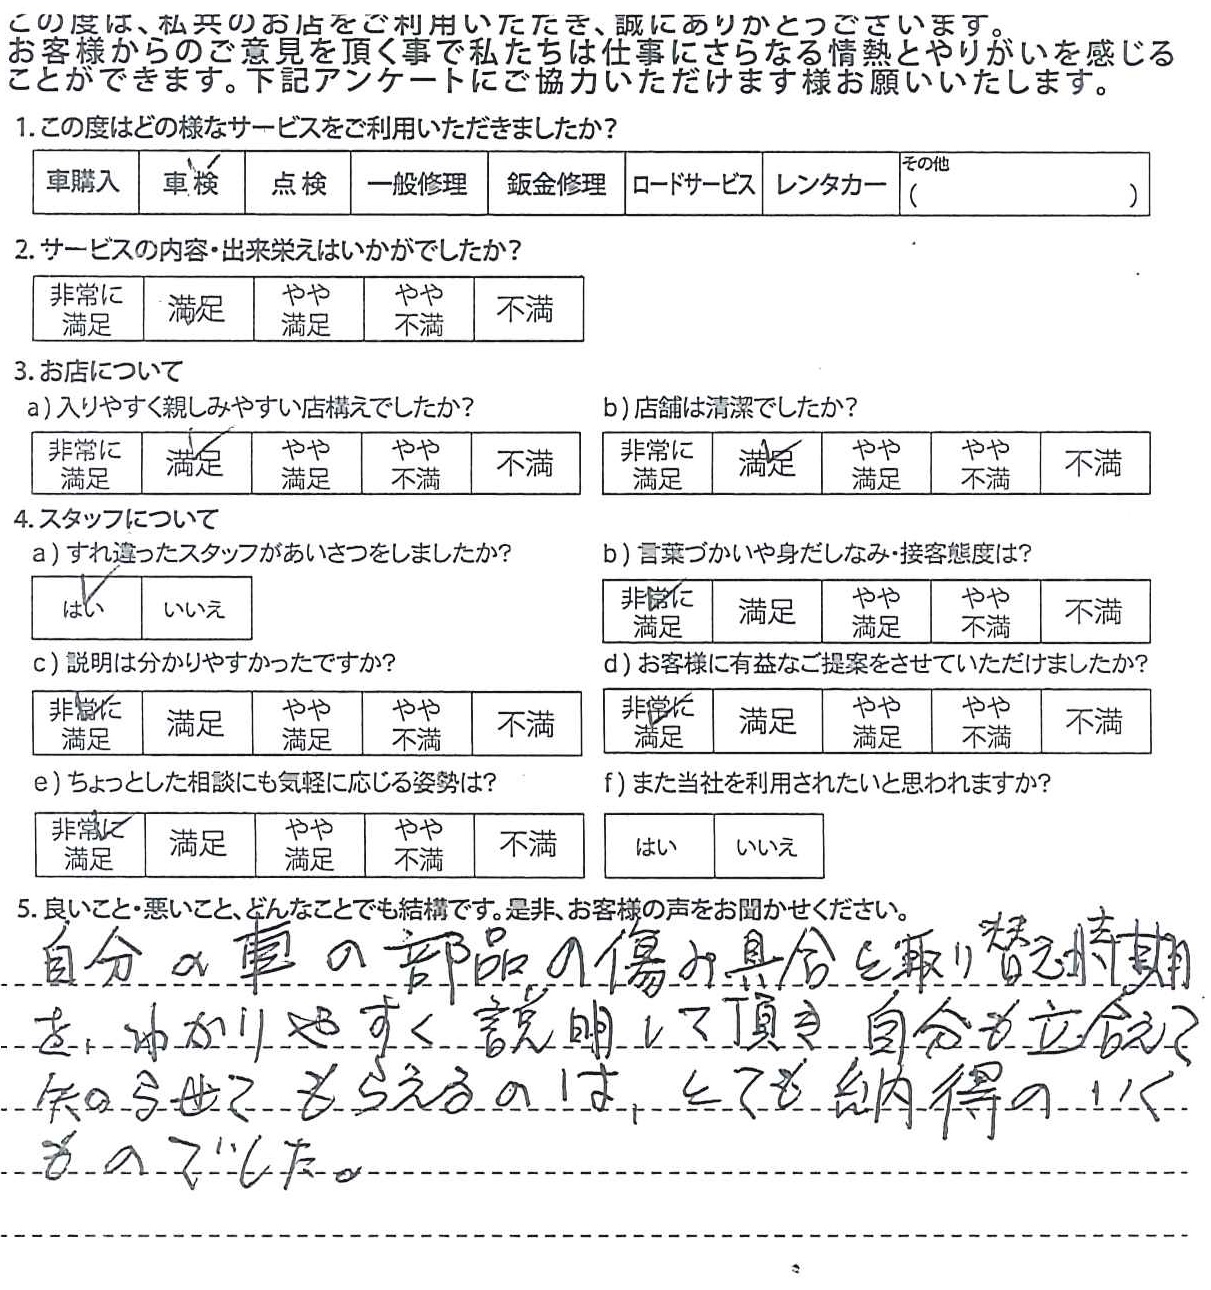 この度は、私共のお店をご利用いただき、誠にありがとうございます。
お客様からのご意見を頂く事で私たちは仕事にさらなる情熱とやりがいを感じる
ことができます。下記アンケートにご協力いただけます様お願いいたします。
1.この度はどの様なサービスをご利用いただきましたか?
車購入 車検 点検 一般修理 鈑金修理 ロードサービス レンタカー その他 ( )
2.サービスの内容・出来栄えはいかがでしたか?
非常に満足 満足 やや満足 やや不満 不満
3.お店について
a)入りやすく親しみやすい店構えでしたか?
非常に満足 満足 やや満足 やや不満 不満
b)店舗は清潔でしたか?
非常に満足 満足 やや満足 やや不満 不満
4.スタッフについて
a)すれ違ったスタッフがあいさつをしましたか?
はい いいえ
b)言葉づかいや身だしなみ・接客態度は?
非常に満足 満足 やや満足 やや不満 不満
c)説明は分かりやすかったですか?
非常に満足 満足 やや満足 やや不満 不満
d)お客様に有益なご提案をさせていただけましたか?
非常に満足 満足 やや満足 やや不満 不満
e)ちょっとした相談にも気軽に応じる姿勢は?
非常に満足 満足 やや満足 やや不満 不満
f)また当社を利用されたいと思われますか?
はい いいえ
5.良いこと・悪いこと、どんなことでも結構です。是非、お客様の声をお聞かせください。
自分の車の部品の傷み具合と取り替え時期
を、わかりやすく説明して頂き 自分も立合えて
知らせてもらえるのは、とても納得のいく
ものでした。